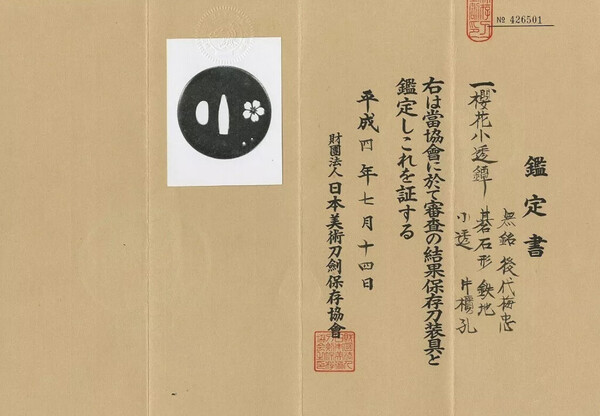 № 426501
鑑定書
一、櫻花小透鐔
無銘 後代梅忠
碁石形 鉄地
小透 片櫃孔
右は當協會に於て審査の結果保存刀装具と
鑑定しこれを証する
平成四年七月十四日
財團法人 日本美術刀劍保存協會